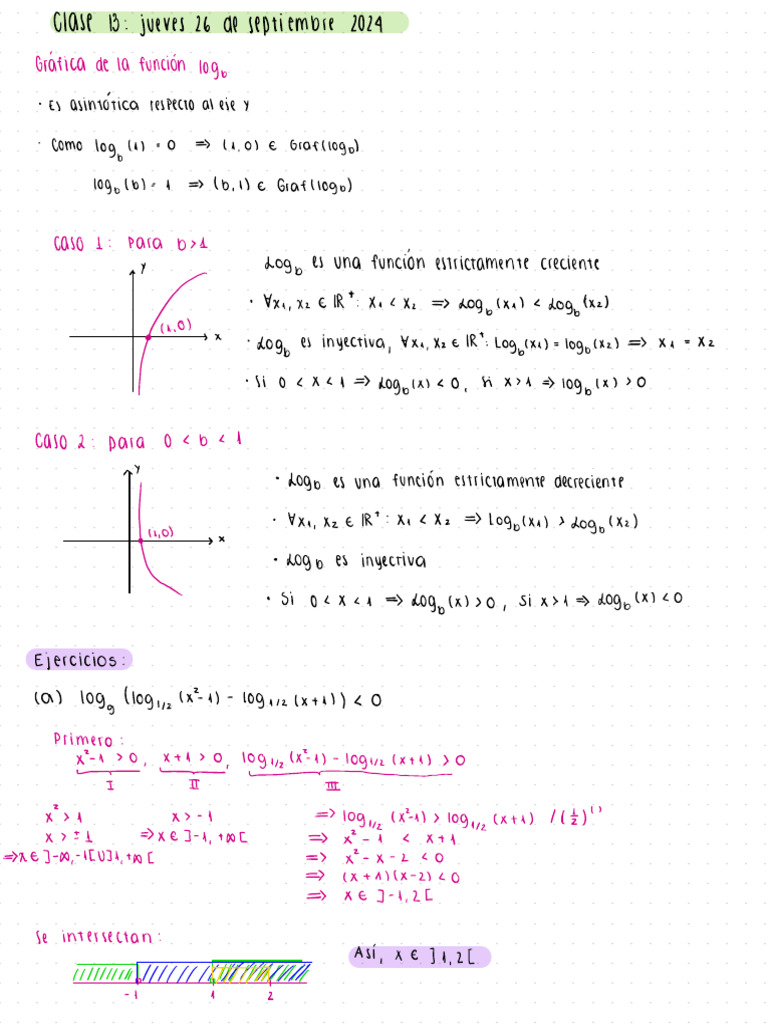 Clase 13: jueves 26 de septiembre 2024
Gráfica de la función log_b
· Es asintótica respecto al eje y
· Como log_b (1) = 0 ⇒ (1,0) ∈ Graf(log_b)
log_b (b) = 1 ⇒ (b,1) ∈ Graf(log_b)
Caso 1: para b>1
Log_b es una función estrictamente creciente
y
(1,0)
x
· ∀x1, x2 ∈ IR⁺: x1 < x2 ⇒ Log_b (x1) < Log_b (x2)
· Log_b es inyectiva, ∀x1, x2 ∈ IR⁺: Log_b(x1) = log_b(x2) ⇒ x1 = x2
· Si 0 < x < 1 ⇒ Log_b(x) < 0, si x>1 ⇒ log_b(x) > 0
Caso 2: para 0 < b < 1
y
(1,0)
x
· Log_b es una función estrictamente decreciente
· ∀x1, x2 ∈ IR⁺: x1 < x2 ⇒ Log_b(x1) > Log_b(x2)
· Log_b es inyectiva
· Si 0 < x < 1 ⇒ Log_b(x) > 0, Si x>1 ⇒ Log_b(x) < 0
Ejercicios:
(a) log_9 (log_1/2 (x²-1) - log_1/2 (x+1)) < 0
Primero:
x²-1 > 0, x+1 > 0, log_1/2 (x²-1) - log_1/2 (x+1) > 0
I II III
x² > 1
x > ±1
⇒ x ∈ ]-∞,-1[ U ]1,+∞[
x > -1
⇒ x ∈ ]-1,+∞[
⇒ log_1/2 (x²-1) > log_1/2 (x+1) /(1/2)^( )
⇒ x² - 1 < x + 1
⇒ x² - x - 2 < 0
⇒ (x+1)(x-2) < 0
⇒ x ∈ ]-1,2[
Se intersectan:
-1 1 2
Así, x ∈ ]1,2[